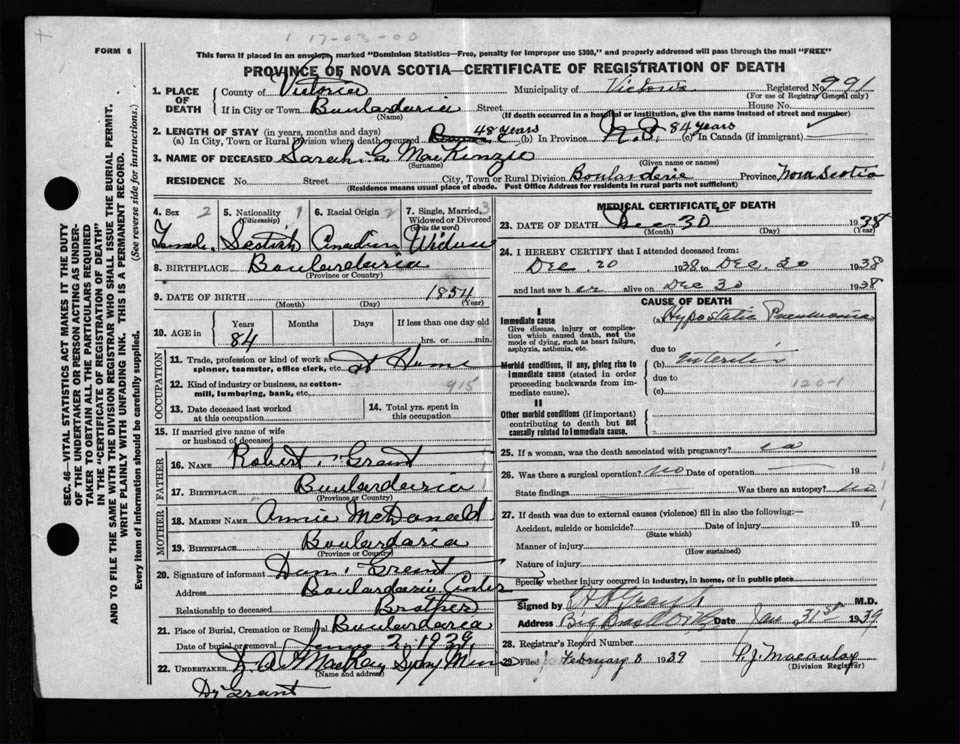 1 17-03-00
FORM 6
This form if placed in an envelope marked "Dominion Statistics—Free, penalty for improper use $300," and properly addressed will pass through the mail "FREE"
PROVINCE OF NOVA SCOTIA—CERTIFICATE OF REGISTRATION OF DEATH
SEC. 46—VITAL STATISTICS ACT MAKES IT THE DUTY
OF THE UNDERTAKER OR PERSON ACTING AS UNDER-
TAKER TO OBTAIN ALL THE PARTICULARS REQUIRED
IN THE "CERTIFICATE OF REGISTRATION OF DEATH"
AND TO FILE THE SAME WITH THE DIVISION REGISTRAR WHO SHALL ISSUE THE BURIAL PERMIT.
WRITE PLAINLY WITH UNFADING INK. THIS IS A PERMANENT RECORD.
Every item of information should be carefully supplied. (See reverse side for instructions.)
1. PLACE OF DEATH County of Victoria Municipality of Victoria Registered No. 991
(For use of Registrar General only)
If in City or Town Boulardarie Street House No.
(Name) (If death occurred in a hospital or institution, give the name instead of street and number)
2. LENGTH OF STAY (in years, months and days)
(a) In City, Town or Rural Division where death occurred 48 years (b) In Province N.S. 84 years (c) In Canada (if immigrant)
3. NAME OF DECEASED Sarah MacKenzie
(Surname) (Given name or names)
RESIDENCE No. Street City, Town or Rural Division Boularderie Province Nova Scotia
(Residence means usual place of abode. Post Office Address for residents in rural parts not sufficient)
4. Sex 2 5. Nationality 1 (Citizenship) 6. Racial Origin 2 7. Single, Married, 3 Widowed or Divorced (write the word)
Female Scotish Canadian Widow
8. BIRTHPLACE Boulardaria
(Province or Country)
9. DATE OF BIRTH 1854
(Month) (Day) (Year)
10. AGE in Years Months Days If less than one day old
84 hrs. or min.
OCCUPATION
11. Trade, profession or kind of work as
spinner, teamster, office clerk, etc. at Home
12. Kind of industry or business, as cotton- 915
mill, lumbering, bank, etc.
13. Date deceased last worked at this occupation 14. Total yrs. spent in this occupation
15. If married give name of wife
or husband of deceased
FATHER
16. NAME Robert Grant
17. BIRTHPLACE Boulardaria
(Province or Country)
MOTHER
18. MAIDEN NAME Annie McDonald
19. BIRTHPLACE Boulardaria
(Province or Country)
20. Signature of informant Dan Grant
Address Boulardarie Center
Relationship to deceased Brother
21. Place of Burial, Cremation or Removal Boulardaria
Date of burial or removal 2, 1939
22. UNDERTAKER MacKay Sydney Mines
(Name and address)
Dr Grant
MEDICAL CERTIFICATE OF DEATH
23. DATE OF DEATH Dec 30 1938
(Month) (Day) (Year)
24. I HEREBY CERTIFY that I attended deceased from:
Dec. 20 1938 to Dec. 30 1938
and last saw her alive on Dec 30 1938
CAUSE OF DEATH
I
Immediate cause (a) Hypostatic Pneumonia
Give disease, injury or complica-
tion which caused death, not the
mode of dying, such as heart failure,
asphyxia, asthenia, etc. due to
Morbid conditions, if any, giving rise to (b) Enteritis
immediate cause (stated in order due to
proceeding backwards from im- 120-1
mediate cause). (c)
II
Other morbid conditions (if important)
contributing to death but not
causally related to immediate cause.
25. If a woman, was the death associated with pregnancy? no
26. Was there a surgical operation? no Date of operation 19
State findings Was there an autopsy? no
27. If death was due to external causes (violence) fill in also the following:—
Accident, suicide or homicide? Date of injury 19
(State which)
Manner of injury
(How sustained)
Nature of injury
Specify whether injury occurred in industry, in home, or in public place
Signed by M.D.
Address Date Jan 31st 1939
28. Registrar's Record Number
29. Filed February 8 1939 P.J. Macaulay
(Division Registrar)